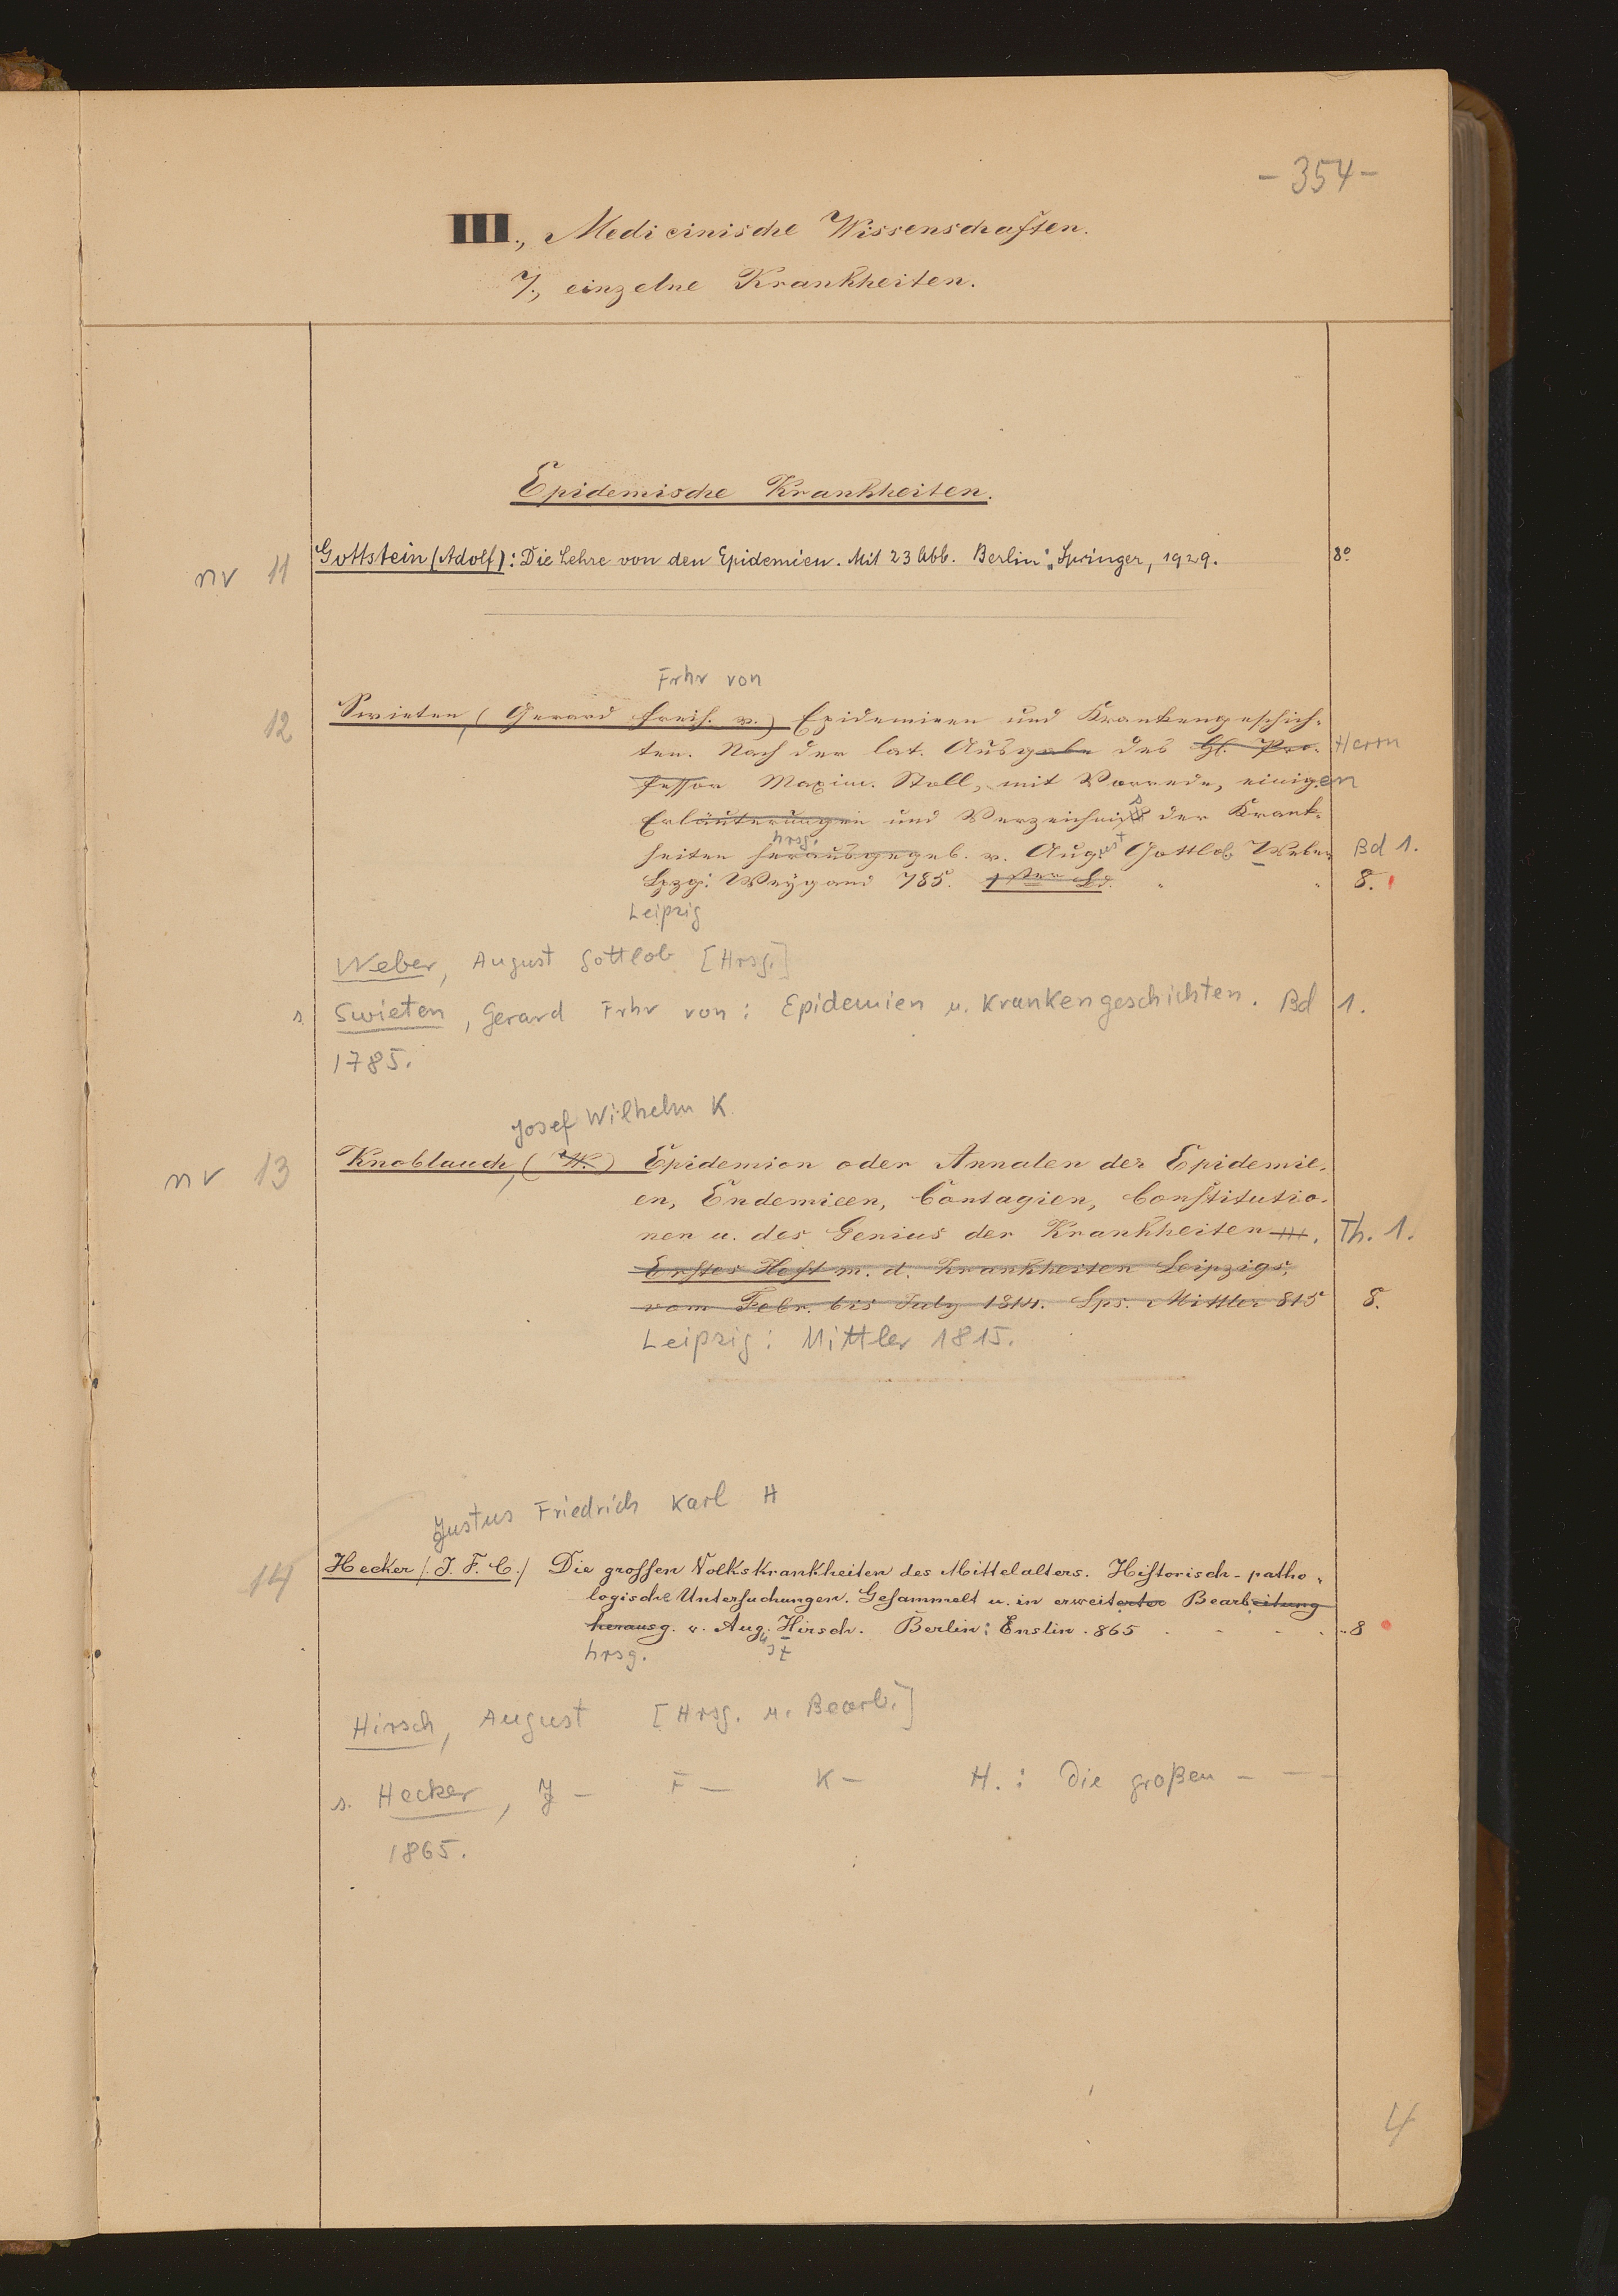 - 354 -
III., Medicinische Wissenschaften.
7., einzelne Krankheiten.
Epidemische Krankheiten.
nv 11 Gottstein (Adolf): Die Lehre von den Epidemien. Mit 23 Abb. Berlin: Springer, 1929. 8º
Frhr von
12 Swieten, (Gerard Freih. v.) Epidemieen und Krankengeschich-
ten. Nach der lat. Ausgabe des H. Pro- Herrn
fessor Maxim. Stoll, mit Vorrede, einigen
Erläuterungen und Verzeichniß der Krank-
s
heiten herausgegeb. v. August Gottlob Weber Bd 1.
hrsg.
Lpzg: Weygand 785. 1ster Bd. " " 8.
Leipzig
Weber, August Gottlob [Hrsg.]
s. Swieten, Gerard Frhr von: Epidemien u. Krankengeschichten. Bd 1.
1785.
Josef Wilhelm K.
nv 13 Knoblauch, (W.) Epidemion oder Annalen der Epidemie-
en, Endemieen, Contagien, Constitutio-
nen u. des Genius der Krankheiten III. Th. 1.
Erstes Heft m. d. Krankheiten Leipzigs,
vom Febr. bis July 1814. Lps. Mittler 815 8.
Leipzig: Mittler 1815.
Justus Friedrich Karl H
14 Hecker (J. F. C.) Die grossen Volkskrankheiten des Mittelalters. Historisch-patho-
logische Untersuchungen. Gesammelt u. in erweiterter Bearbeitung
herausg. v. Aug. Hirsch. Berlin: Enslin. 865 . - - . .. 8
hrsg. ust
Hirsch, August [Hrsg. u. Bearb.]
s. Hecker, J - F - K - H.: Die großen - - -
1865.
4